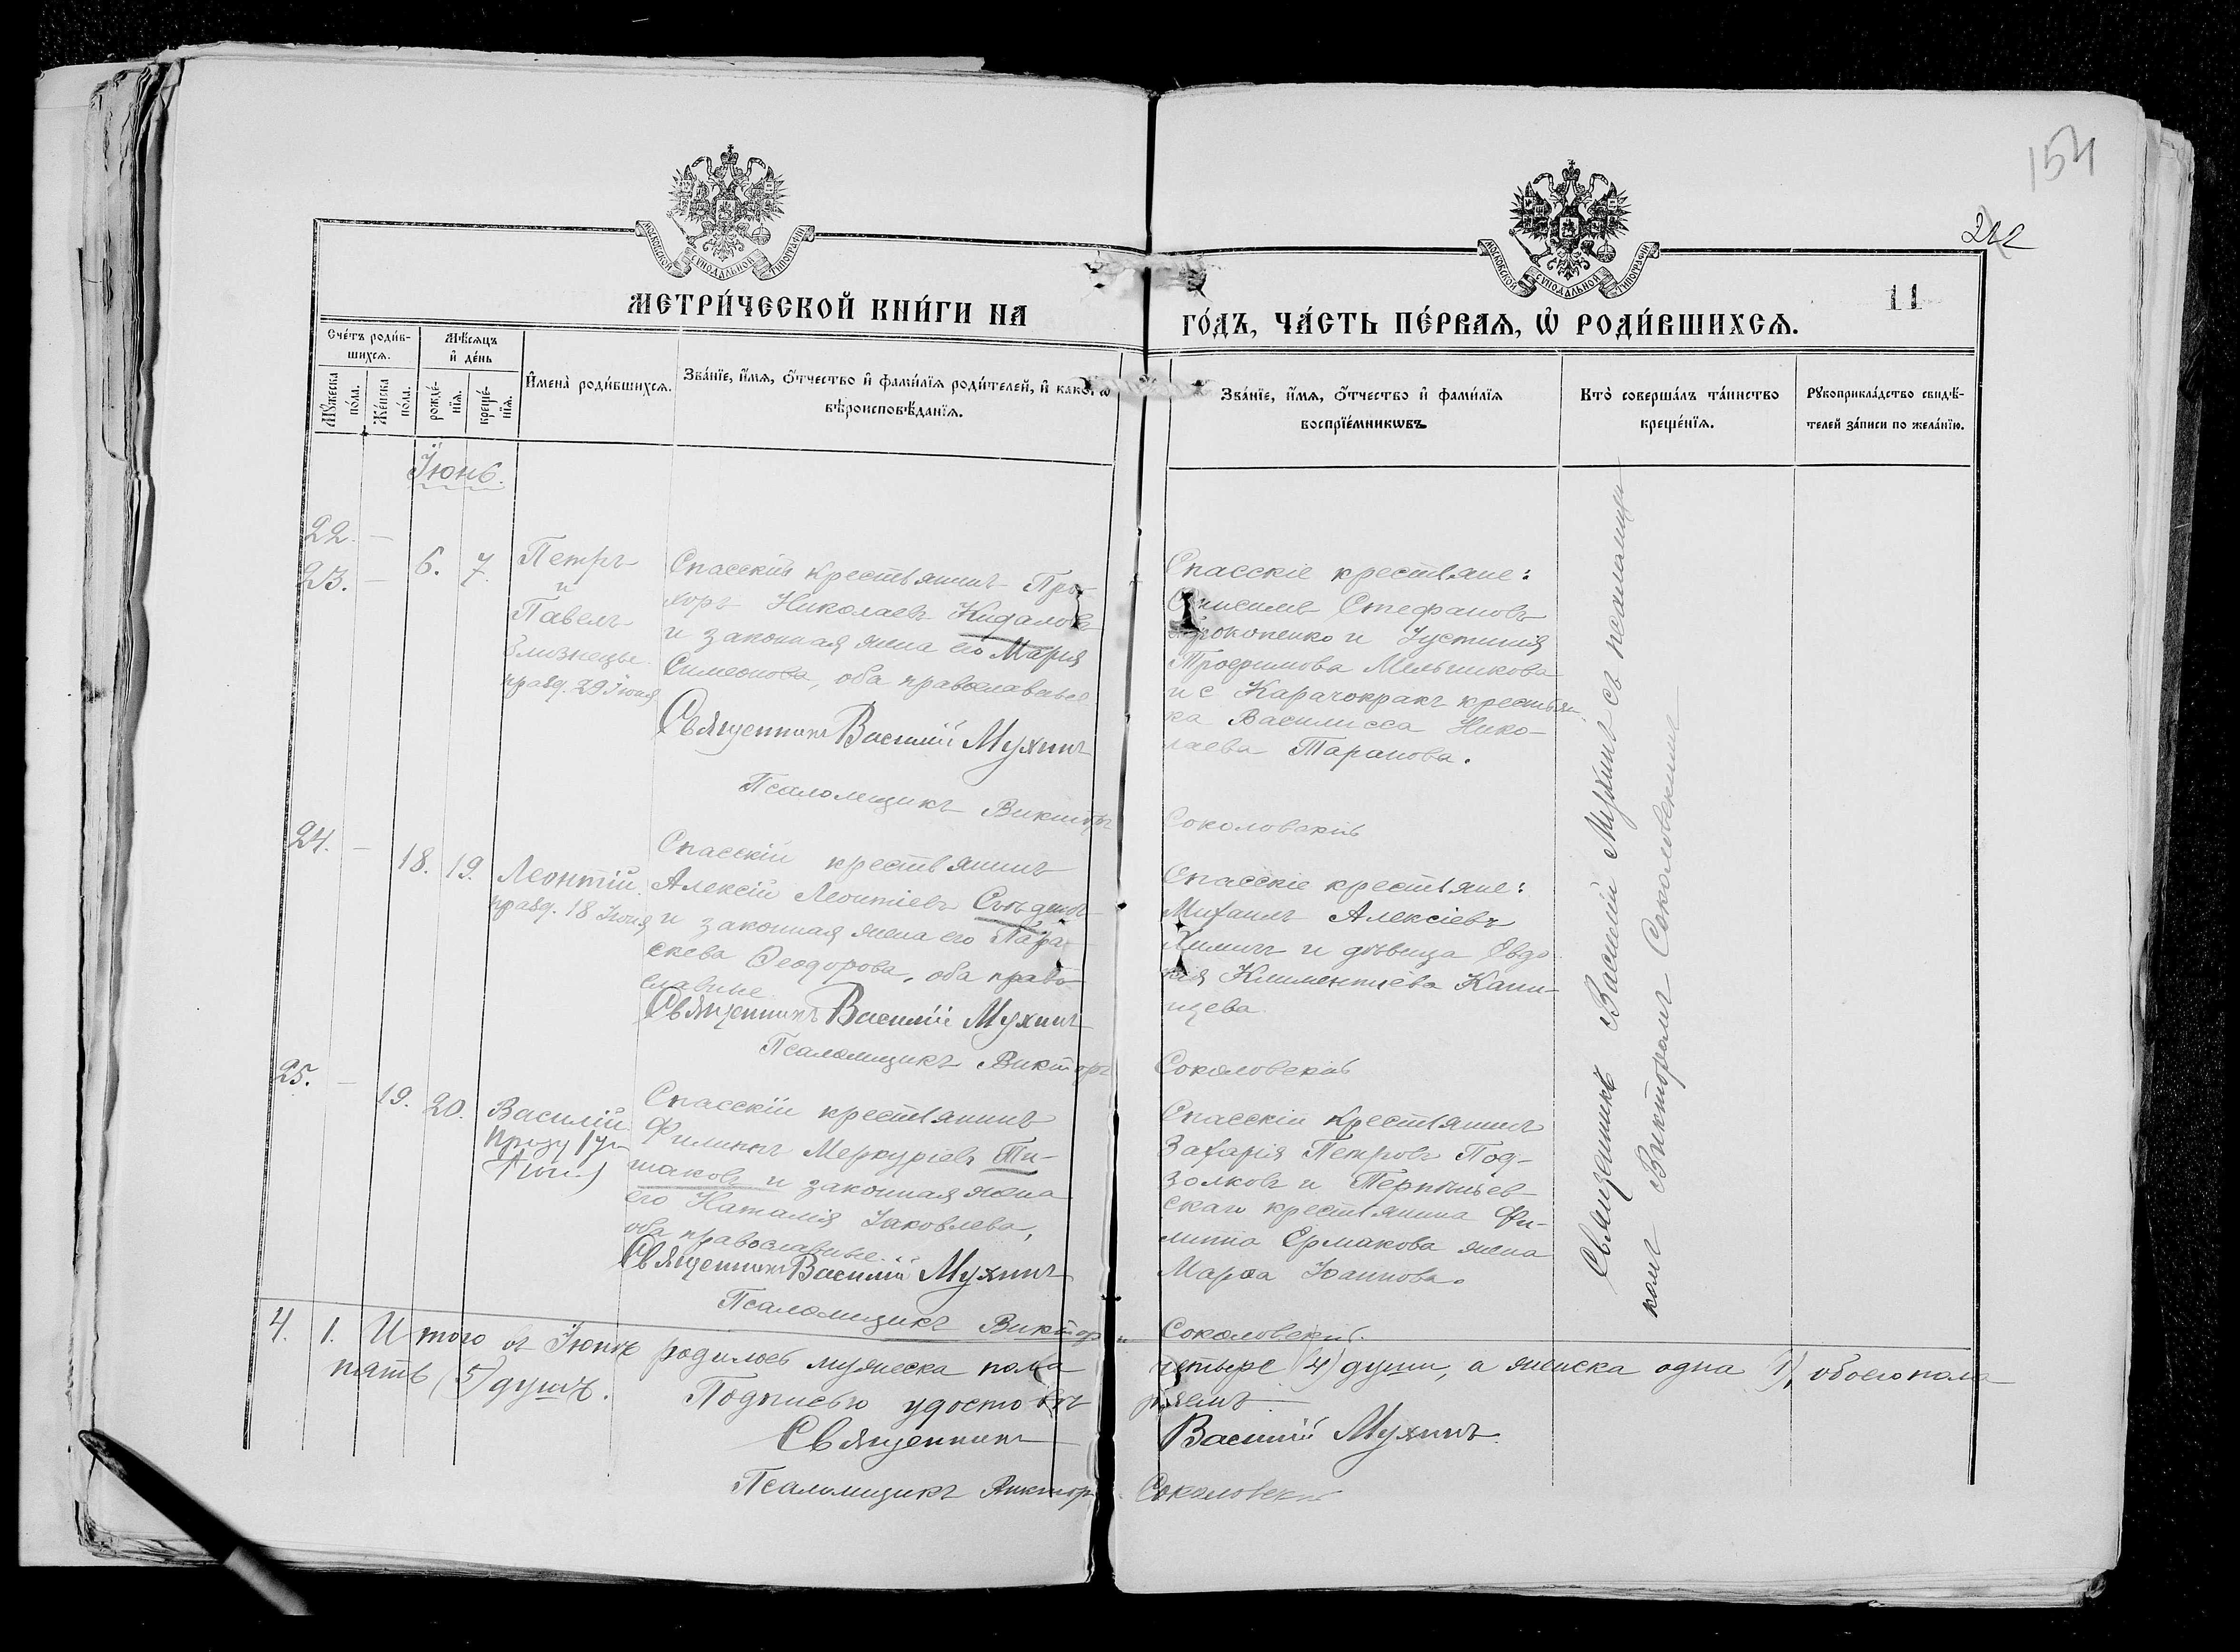 154
222
МОСКОВСКОЙ СѴНОДАЛЬНОЙ ТИПОГРАФІИ
МОСКОВСКОЙ СѴНОДАЛЬНОЙ ТИПОГРАФІИ
МЕТРИ́ЧЕСКОЙ КНИ́ГИ НА
ГО́ДЪ, ЧА́СТЬ ПЕ́РВАЯ, Ѡ҆ РОДИ́ВШИХСЯ.
11
Сче́тъ роди́в-
шихся.
Мѣ́сяцъ
и҆ де́нь
Мꙋ́жеска
по́ла.
Же́нска
по́ла.
рожде́-
нїя.
креще́-
нїя.
И҆мена̀ роди́вшихся.
Зва́нїе, и҆́мя, ѻ҆́тчество и҆ фами́лїя роди́телей, и҆ како́гѡ
вѣроисповѣ́данїя.
Зва́нїе, и҆́мя, ѻ҆́тчество и҆ фами́лїя
воспрїе́мникѡвъ.
Кто̀ соверша́лъ та́инство
креще́нїя.
Рꙋкоприкла́дство свидѣ́-
телей за́писи по жела́нїю.
Іюнь.
22. —
23. —
6. 7.
Петръ
и
Павелъ
близнецы
празд. 29 Іюня
Спасскій крестьянинъ Про-
хоръ Николаевъ Кидаловъ
и законная жена его Марія
Симеонова, оба православные
Священникъ Василій Мухинъ
Псаломщикъ Викторъ
Спасскіе крестьяне:
Онисимъ Стефановъ
Прокопенко и Іустинія
Трофимова Мельникова
и с Карачокракъ крестьян
ка Василисса Нико-
лаева Таранова.
Соколовскій
24. —
18. 19.
Леонтій
празд. 18 Іюня
Спасскій крестьянинъ
Алексій Леонтіевъ
и законная жена его Пара-
скева Ѳеодорова, оба право-
славные
Священникъ Василій Мухинъ
Псаломщикъ Викторъ
Спасскіе крестьяне:
Михаилъ Алексіевъ
и дѣвица Евдо-
кія Климентіева Капи-
Соколовскій
25. —
19. 20.
Василій
Спасскій крестьянинъ
Филиппъ Меркуріевъ Ти-
шаковъ и законная жена
его Наталія Іаковлева,
оба православные.
Священникъ Василій Мухинъ
Псаломщикъ Викторъ
Спасскій крестьянинъ
Захарія Петровъ Под-
золковъ и Терпѣніев-
скаго крестьянина Фи-
липпа Ермакова жена
Марѳа Іоаннова.
Соколовскій.
Священникъ Василій Мухинъ съ псаломщи-
комъ Викторомъ Соколовскимъ
4. 1. Итого въ Іюнѣ родилось мужеска пола четыре (4) души, а женска одна 1), обоего пола
пять (5) душъ.
Подписью удостовѣряемъ
Священникъ Василій Мухинъ.
Псаломщикъ Викторъ Соколовскій